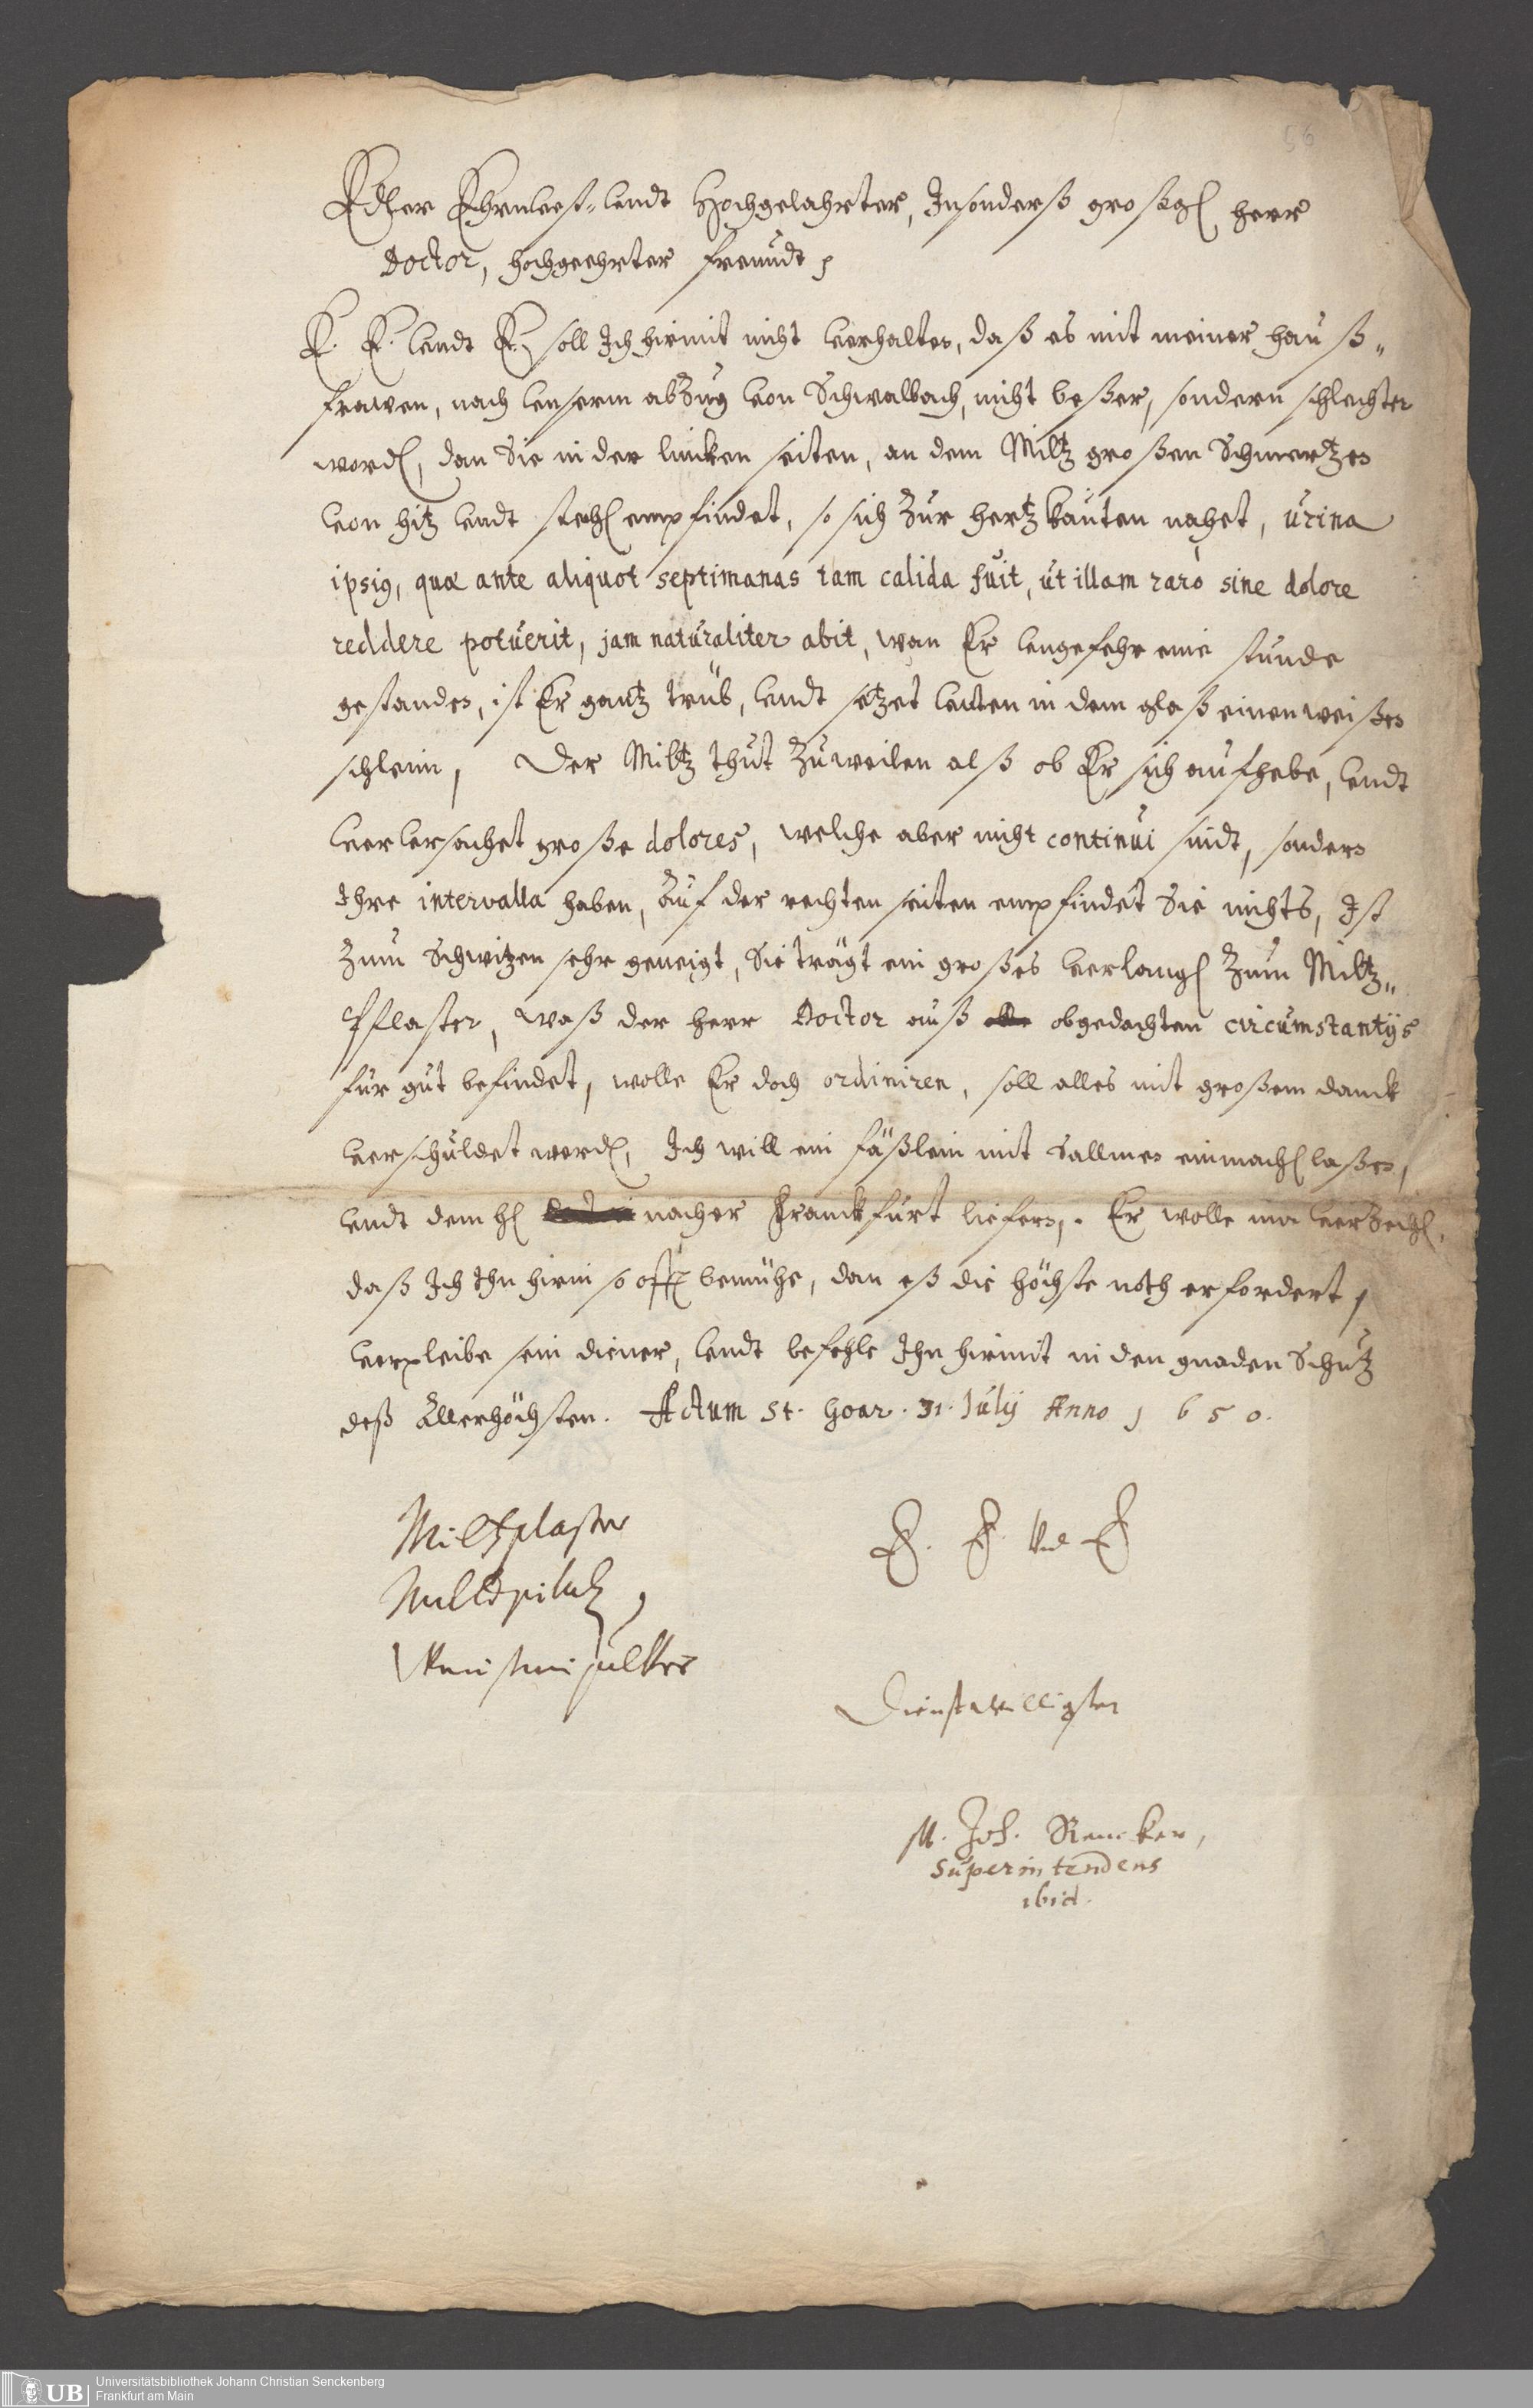 56
Edler Ehrnvest- vndt Hochgelahrter, Insonderß großg. herr
Doctor, hochgeehrter freundt,
E. E. vndt E. soll Ich hirmit nicht verhalten, daß es mit meiner hauß„
frawen, nach vnserm abzug von Schwalbach, nicht beßer, sondern schlechter
word., dan Sie in der lincken seiten, an dem Miltz großen Schmertzen
von hitz vndt stech. empfindet, so sich zur hertzkauten nahet, urina
ipsius, quæ ante aliquot septimanas tam calida fuit, ut illam rarò sine dolore
reddere potuerit, jam naturaliter abit, wan Er vngefehr eine stunde
gestanden, ist Er gantz trüb, vndt setzet vnten in dem glaß einen weißen
schleim, Der Miltz thut zuweilen alß ob Er sich aufhebe, vndt
verursachet große dolores, welche aber nicht continui sindt, sondern
Ihre intervalla haben, Auf der rechten seiten empfindet Sie nichts, Ist
zum Schwitzen sehr geneigt, Sie trägt ein großes verlang. zum Miltz„
Pflaster, waß der herr Doctor auß obgedachten circumstantijs
für gut befindet, wolle Er doch ordiniren, soll alles mit großem danck
verschuldet werd., Ich will ein fäßlein mit Sallmen einmach. laßen,
vndt dem h. nacher Franckfurt liefern,. Er wolle mir verzeih.,
daß Ich Ihn hirin so offt bemühe, dan eß die höchste noth erfordert,
verpleibe sein diener, vndt befehle Ihn hirmit in den gnaden Schutz
deß Allerhöchsten. Actum St. Goar. 31. July Anno 1650.
Miltzplaster
E. E. Vnd E
Dienstwilligster
M. Joh. Reucker,
Superintendens
ibid.
UB
Universitätsbibliothek Johann Christian Senckenberg
Frankfurt am Main